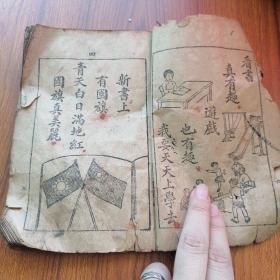 看書
真有趣
遊戲
也有趣
我要天天上學去
四
新書上
有國旗
青天白日滿地紅
國旗真美麗